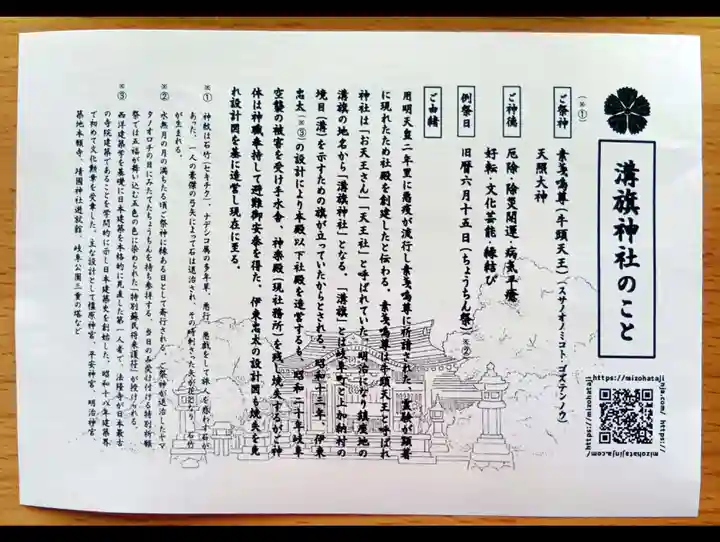 (※①)
溝旗神社のこと
https://mizohatajinja.com/
https://mizohatajinja.com/
ご祭神
素戔嗚尊(牛頭天王)(スサノオノミコト・ゴズテンノウ)
天照大神
ご神徳
厄除・除災開運・病気平癒
好転・文化芸能・縁結び
例祭日
旧暦六月十五日(ちょうちん祭)※②
ご由緒
用明天皇二年里に悪疫が流行し素戔嗚尊に祈請された、霊験が顕著
に現れたため社殿を創建したと伝わる。素戔嗚尊は牛頭天王と呼ばれ
神社は「お天王さん」「天王社」と呼ばれていた。明治になり鎮座地の
溝旗の地名から「溝旗神社」となる。「溝旗」とは岐阜町と上加納村の
境目(溝)を示すための旗が立っていたからとされる。昭和十三年、伊東
忠太(※③)の設計により本殿以下社殿を造営するも、昭和二十年岐阜
空襲の被害を受け手水舎、神楽殿(現社務所)を残し焼失するがご神
体は神職奉持して避難御安泰を得た。伊東忠太の設計図も焼失を免
れ設計図を基に造営し現在に至る。
※①
神紋は石竹(セキチク)、ナデシコ属の多年草。悪行、悪戯をして旅人を惑わす石が
あった。一人の豪傑の弓矢によって石は退治され、その時刺さった矢が花になり「石竹
が生まれる。
※②
水無月の月の満ちたる頃ご祭神に縁ある日として斎行される。ご祭神が退治したヤマ
タノオロチの目にみたてたちょうちんを持ち参拝する。当日のみ受け付ける特別祈願
祭では五福が舞い込む五色の色に染められた「特別蘇民将来護符」が授けられる。
※③
西洋建築学を基礎に日本建築を本格的に見直した第一人者で、法隆寺が日本最古
の寺院建築であることを学問的に示し日本建築史を創始した。昭和十八年建築界
で初めて文化勲章を受章した。主な設計として橿原神宮、平安神宮、明治神宮、
築地本願寺、靖國神社遊就館、岐阜公園三重の塔など